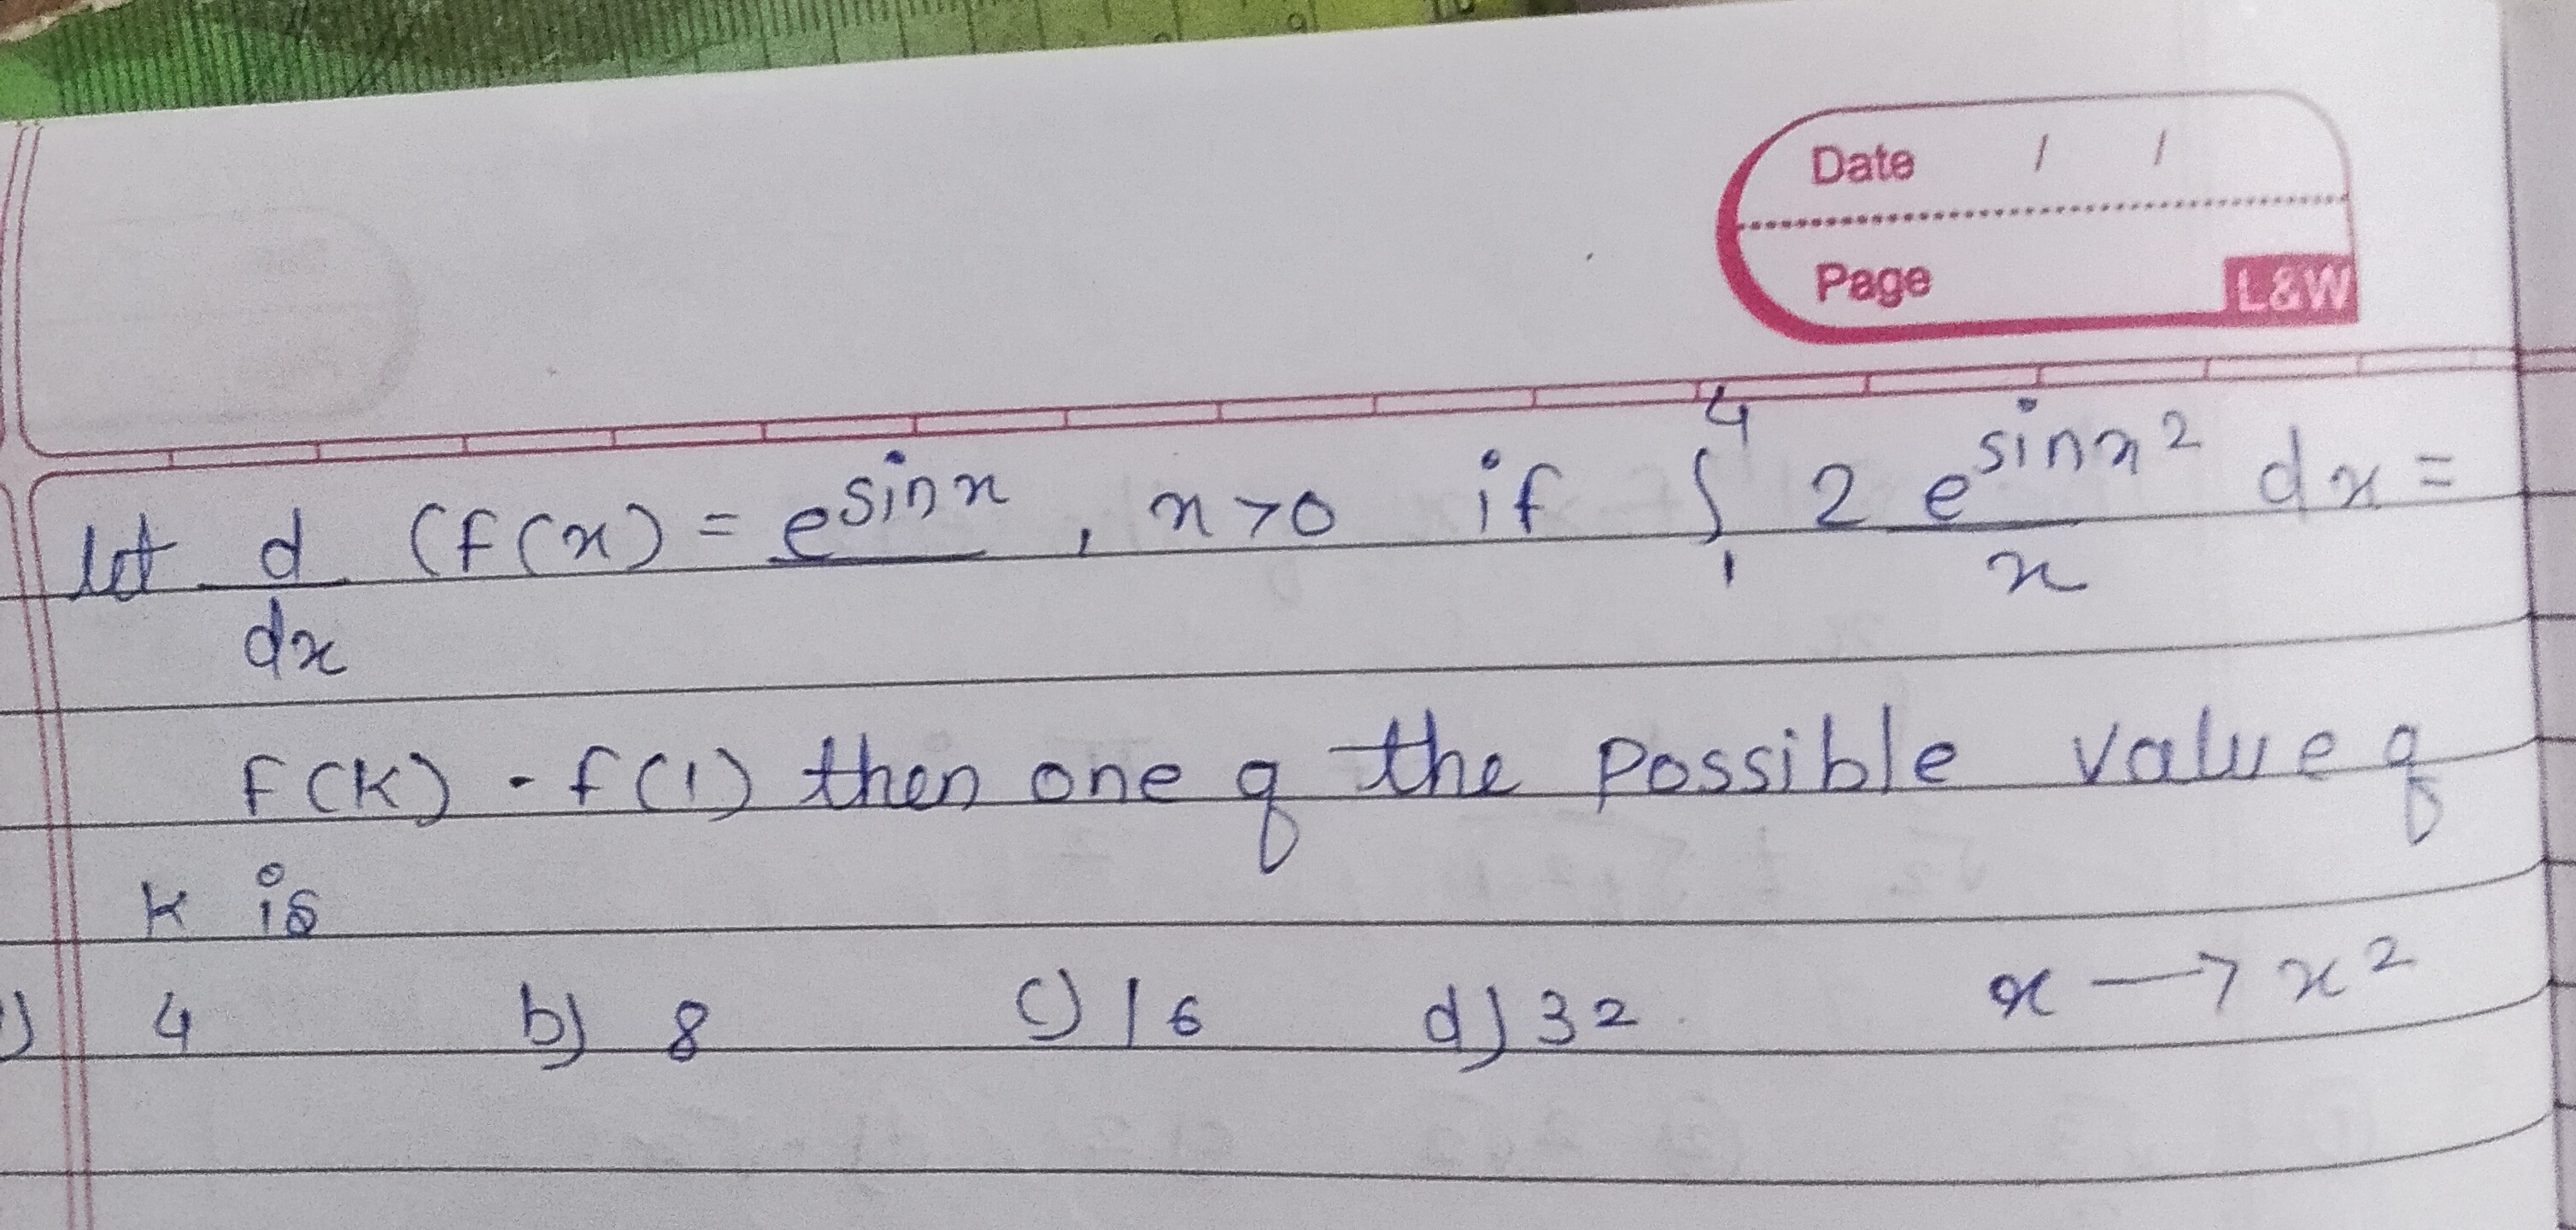 9 10
Date / /
Page
L&W
let d/dx (f(x) = e^sinx/ , x>0 if ∫₁⁴ 2 e^sinx²/x dx =
f(k) - f(1) then one of the possible value of
k is
) 4 b) 8 c) 16 d) 32 x → x²